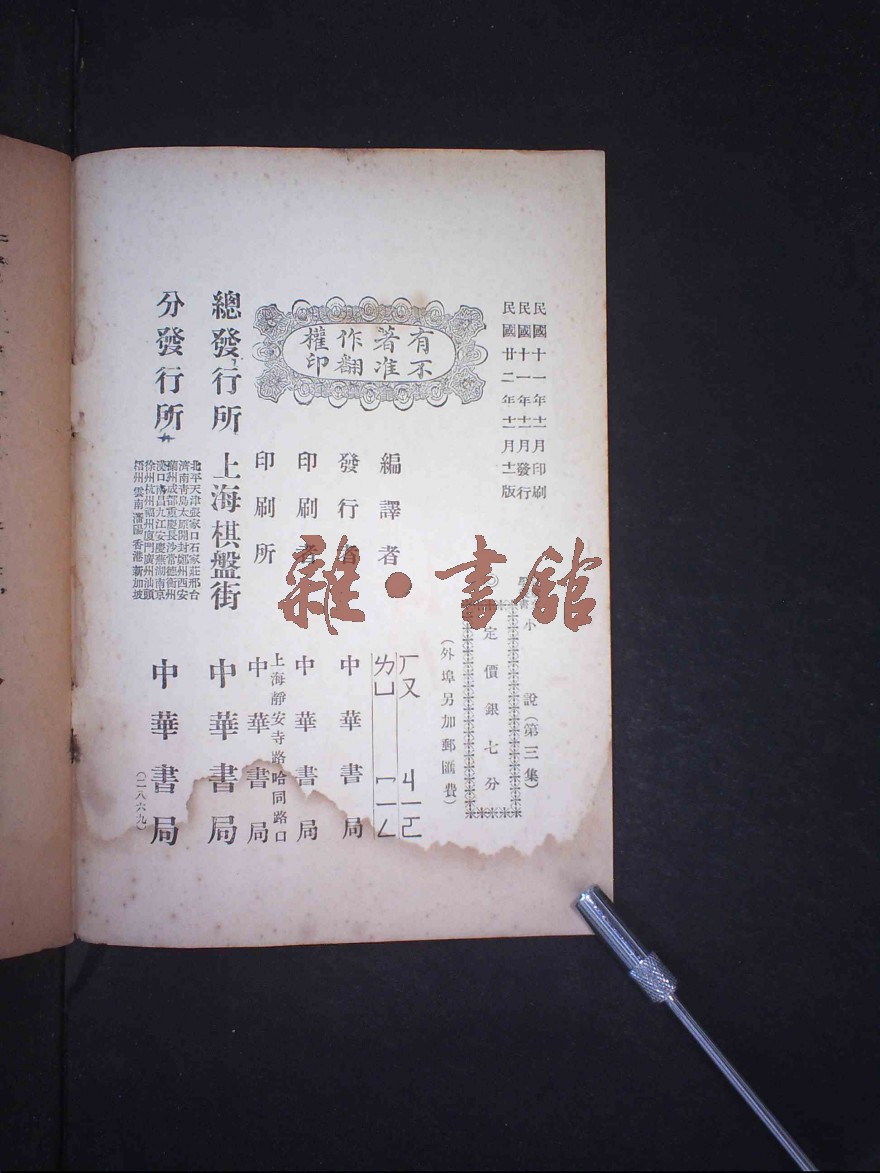 民國十一年十一月印刷
民國十一年十一月發行
民國廿二年十一月十二版
小說(第三集)
定價銀七分
(外埠另加郵匯費)
有著作權
不准翻印
編譯者 ㄏㄡ ㄐㄧㄛ
ㄌㄩ ㄇㄧㄥ
發行者 中華書局
印刷者 中華書局
印刷所 上海靜安寺路哈同路口
中華書局
總發行所 上海棋盤街 中華書局
分發行所
北平天津張家口石家莊邢台
濟南青島太原開封鄭州西安
蘭州成都重慶長沙常德衡州
漢口南昌九江安慶蕪湖南京
徐州杭州福州廈門廣州汕頭
梧州雲南瀋陽香港新加坡
中華書局
(二八六九)
雜·書館